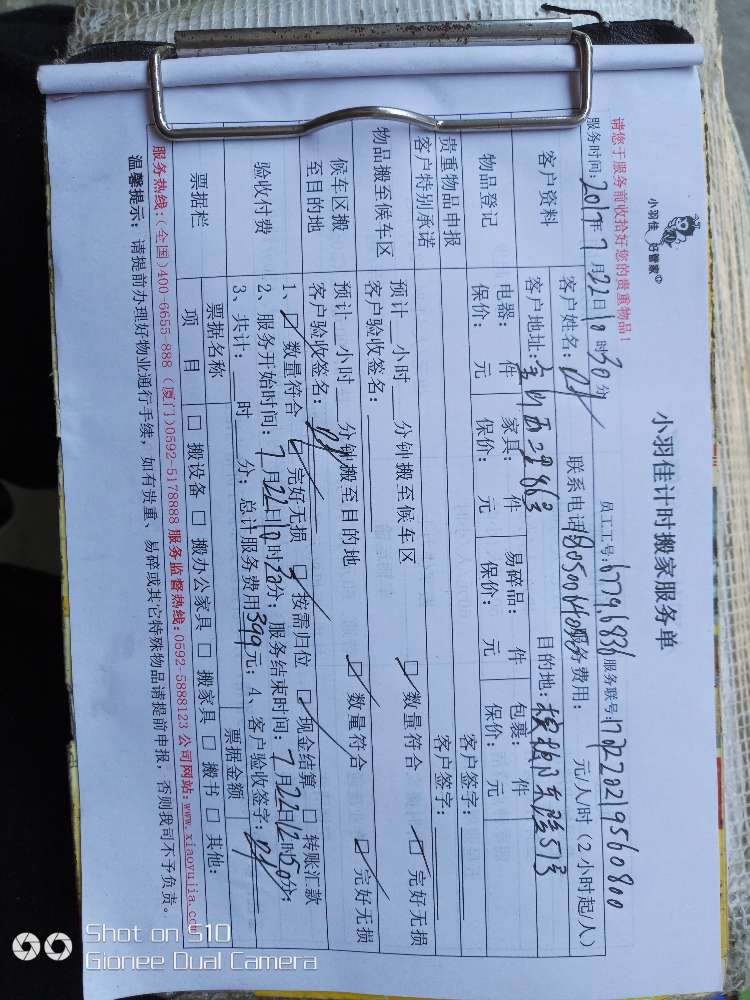 小羽佳 好管家
小羽佳计时搬家服务单
请您于服务前收拾好您的贵重物品!
员工工号: 6779,6836 服务联号: 1707220219560800
服务时间: 2017年7月22日10时30分
客户资料 客户姓名: 联系电话 服务费用: 元/人/时(2小时起/人)
客户地址: 863 目的地: 513
物品登记 电器: 件 家具: 件 易碎品: 件 包裹: 件
保价: 元 保价: 元 保价: 元 保价: 元
贵重物品申报 客户签字:
客户特别承诺 客户签字:
物品搬至候车区 预计 小时 分钟搬至候车区 □ 数量符合 □ 完好无损
客户验收签名:
候车区搬至目的地 预计 小时 分钟搬至目的地 □ 数量符合 □ 完好无损
客户验收签名:
验收付费 1、□ 数量符合 □ 完好无损 □ 按需归位 □ 现金结算 □ 转账汇款
2、服务开始时间: 7月22日10时30分; 服务结束时间: 7月22日12时50分;
3、共计: 时 分; 总计服务费用399元; 4、客户验收签字:
票据栏 票据名称 票据金额
项 目 □ 搬设备 □ 搬办公家具 □ 搬家具 □ 搬书 □ 其他:
服务热线:(全国)400-6655 888 (厦门)0592-5178888 服务监督热线:0592-5888123 公司网站:www.xiaoyujia.co
温馨提示: 请提前办理好物业通行手续, 如有贵重、易碎或其它特殊物品请提前申报, 否则我司不予负责。
Shot on S10
Gionee Dual Camera